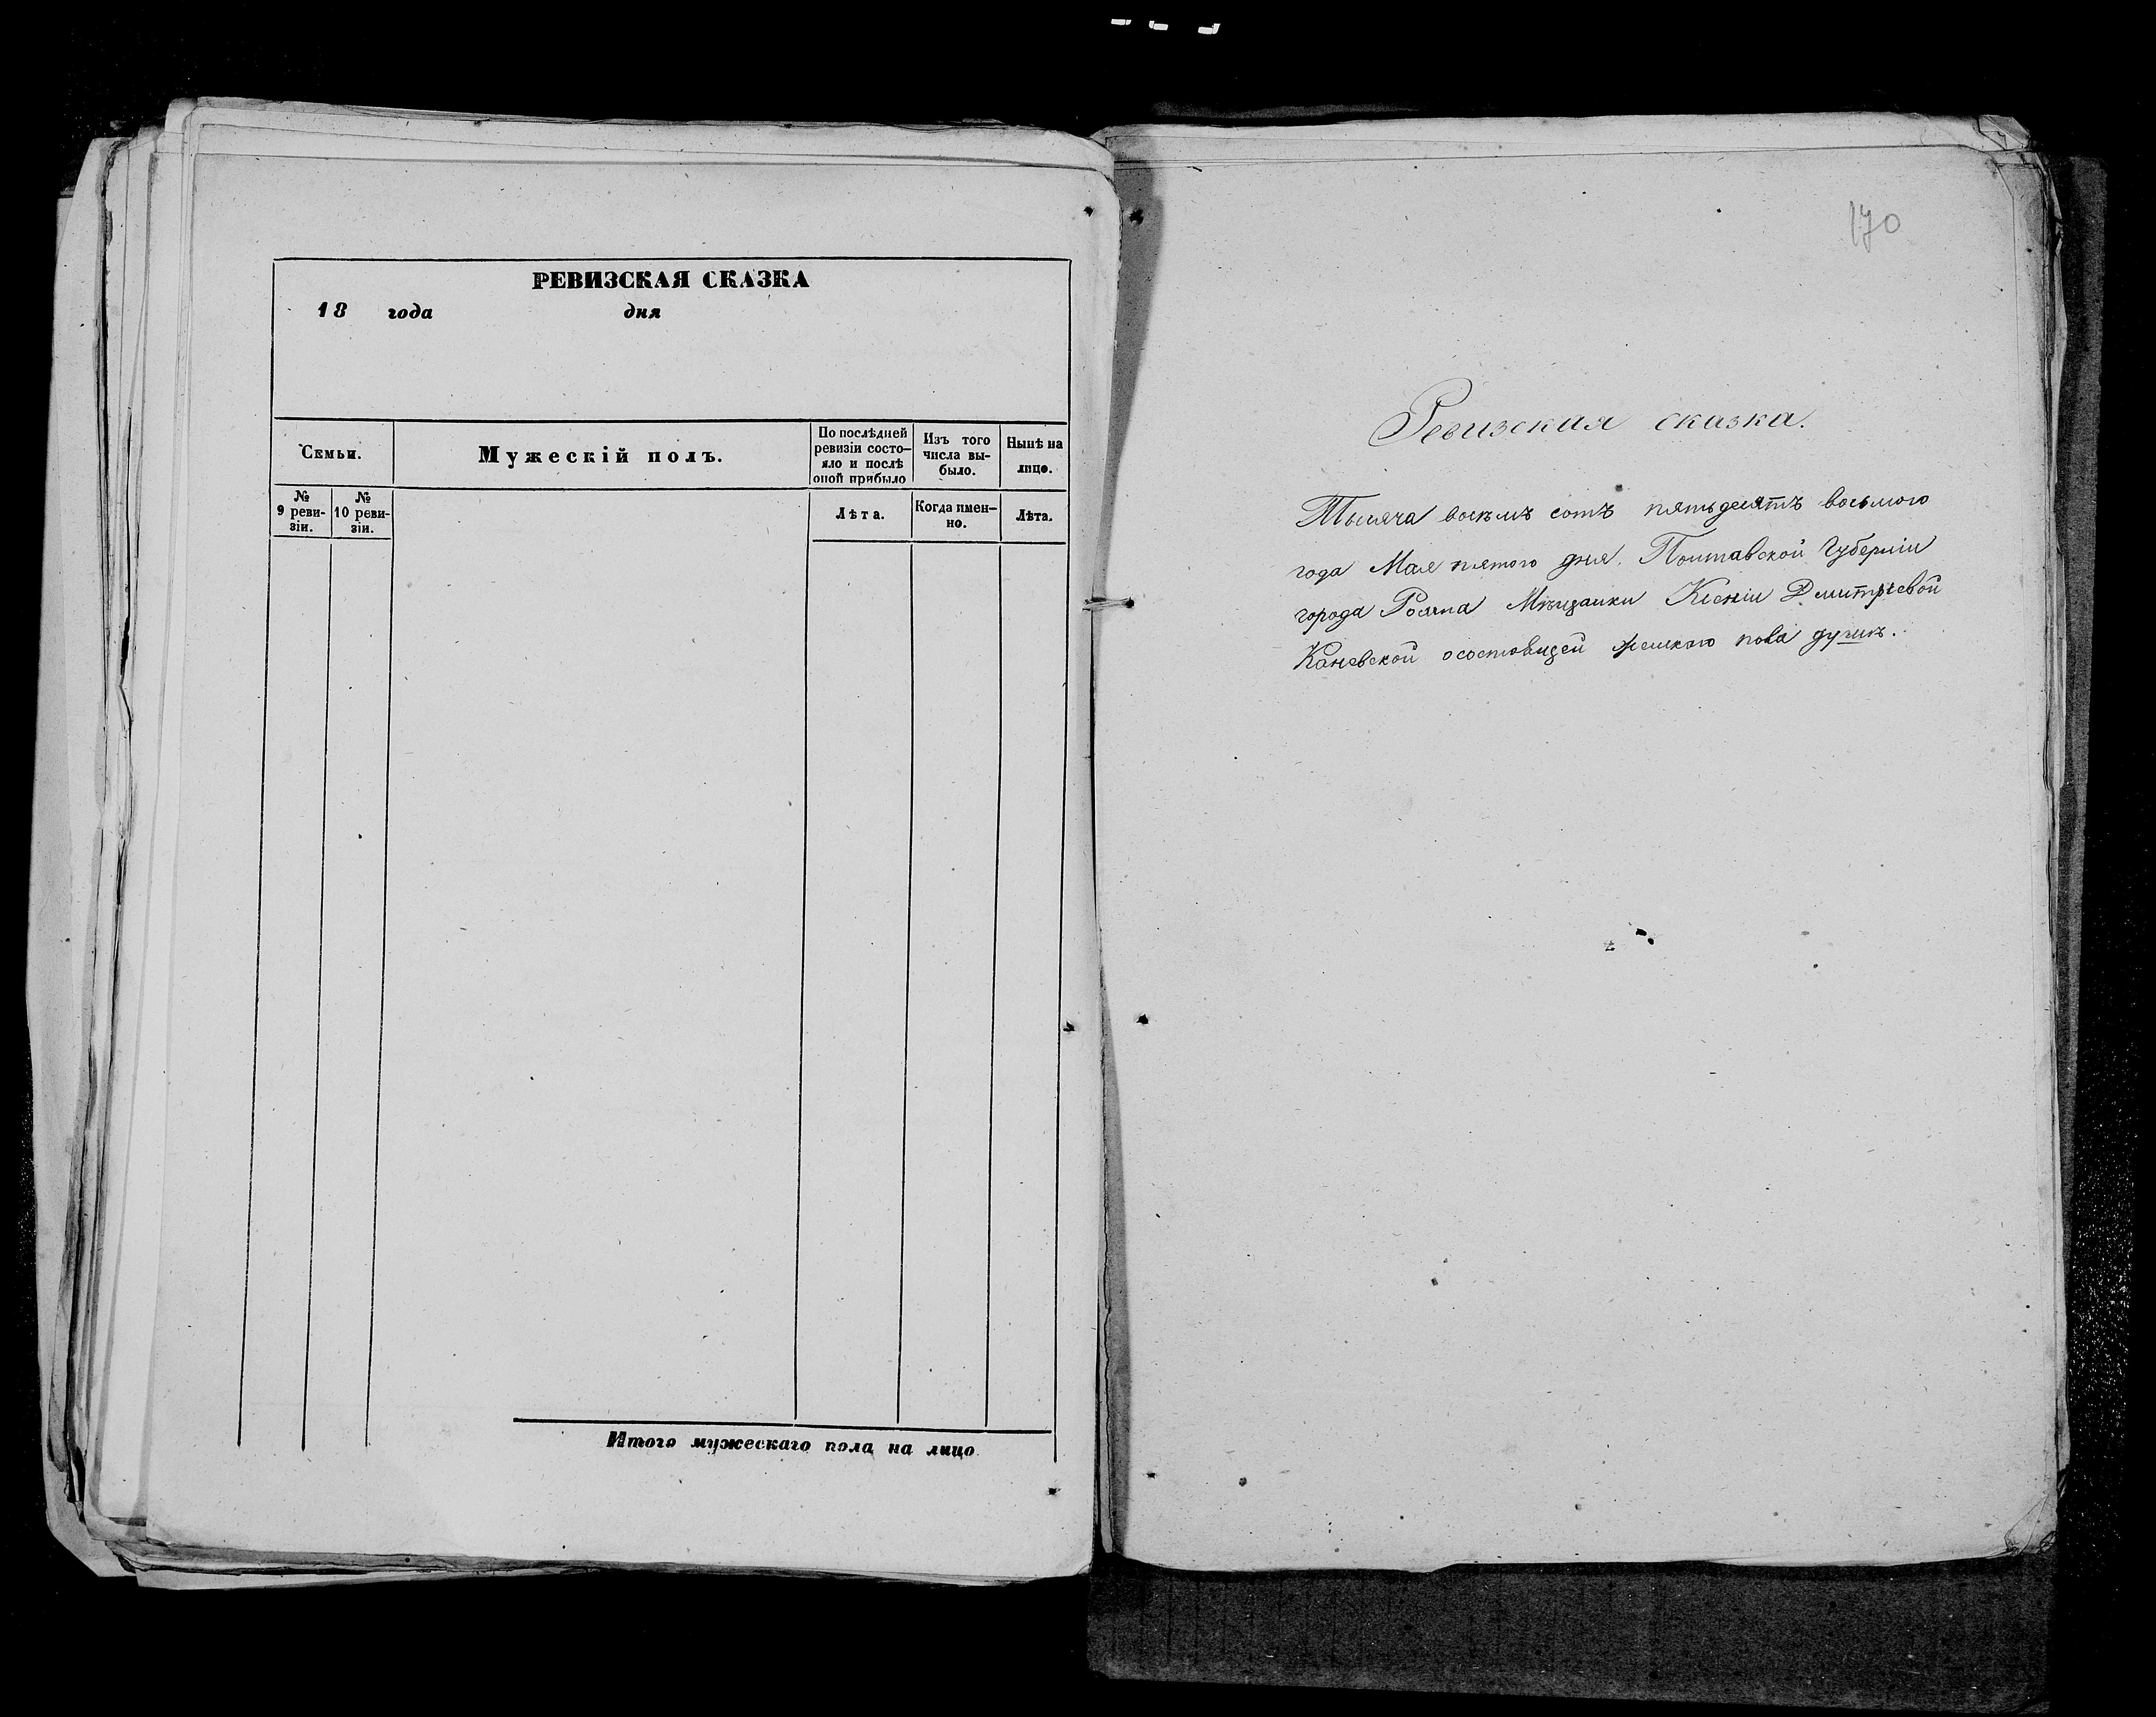 РЕВИЗСКАЯ СКАЗКА
18 года дня
Семьи.
Мужескій полъ.
По послѣдней
ревизіи состо-
яло и послѣ
оной прибыло
Изъ того
числа вы-
было.
Нынѣ на
лицо.
№
9 реви-
зіи.
№
10 реви-
зіи.
Лѣта.
Когда имен-
но.
Лѣта.
Итого мужескаго пола на лицо
170
Ревизская сказка.
Тысяча восемь сотъ пятьдесятъ восьмого
года Мая пятого дня. Полтавской Губерніи
города Мѣщанки Ксеніи Дмитріевой
Каневской осостоящей женскаго пола душъ.